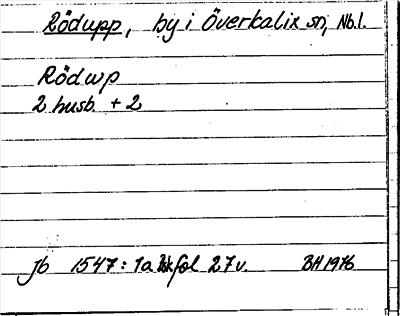 Rödupp, by i Överkalix sn, Nb.l.
Rödwp
2 husb. + 2
Jb 1547: 1a fol 27v. BH 1976